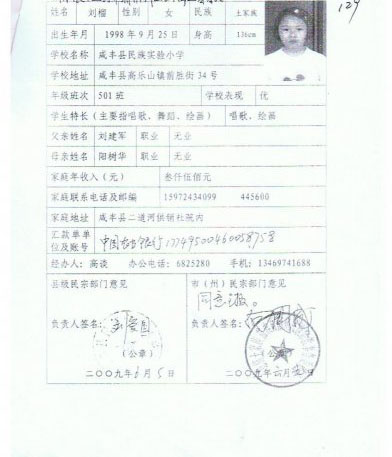 129
姓名 刘榴 性别 女 民族 土家族
出生年月 1998年9月25日 身高 136cm
学校名称 咸丰县民族实验小学
学校地址 咸丰县高乐山镇前胜街34号
年级班次 501班 学校表现 优
学生特长(主要指唱歌、舞蹈、绘画) 唱歌、绘画
父亲姓名 刘建军 职业 无业
母亲姓名 阳树华 职业 无业
家庭年收入(元) 叁仟伍佰元
家庭联系电话及邮编 15972434099 445600
家庭地址 咸丰县二道河供销社院内
汇款单单
位及账号 中国农业银行
经办人:高谈 办公电话:6825280 手机:13469741688
县级民宗部门意见 市(州)民宗部门意见
同意报。
负责人签名: 负责人签名:
(公章) (公章)
二〇〇九年6月5日 二〇〇九年六月